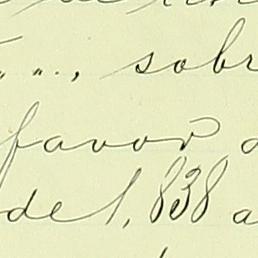 " " . , sobr
favor
de 1,838 a